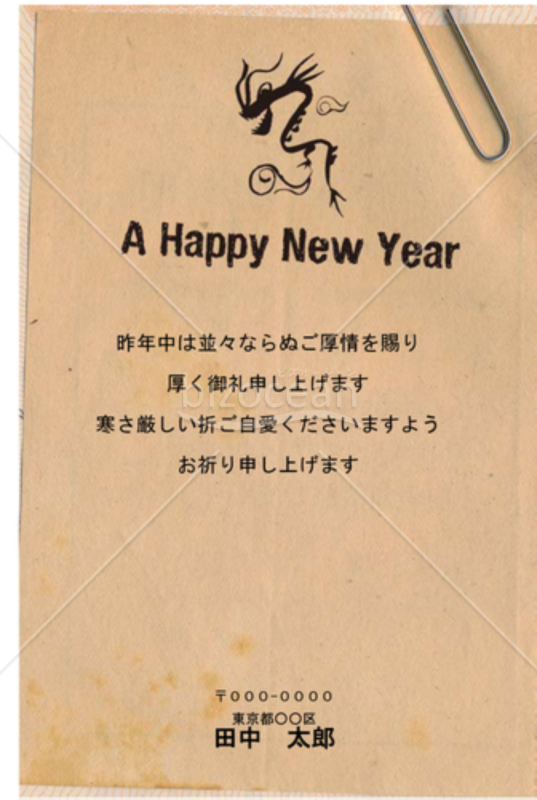 A Happy New Year
昨年中は並々ならぬご厚情を賜り
厚く御礼申し上げます
bizocean
寒さ厳しい折ご自愛くださいますよう
お祈り申し上げます
〒000-0000
東京都〇〇区
田中　太郎